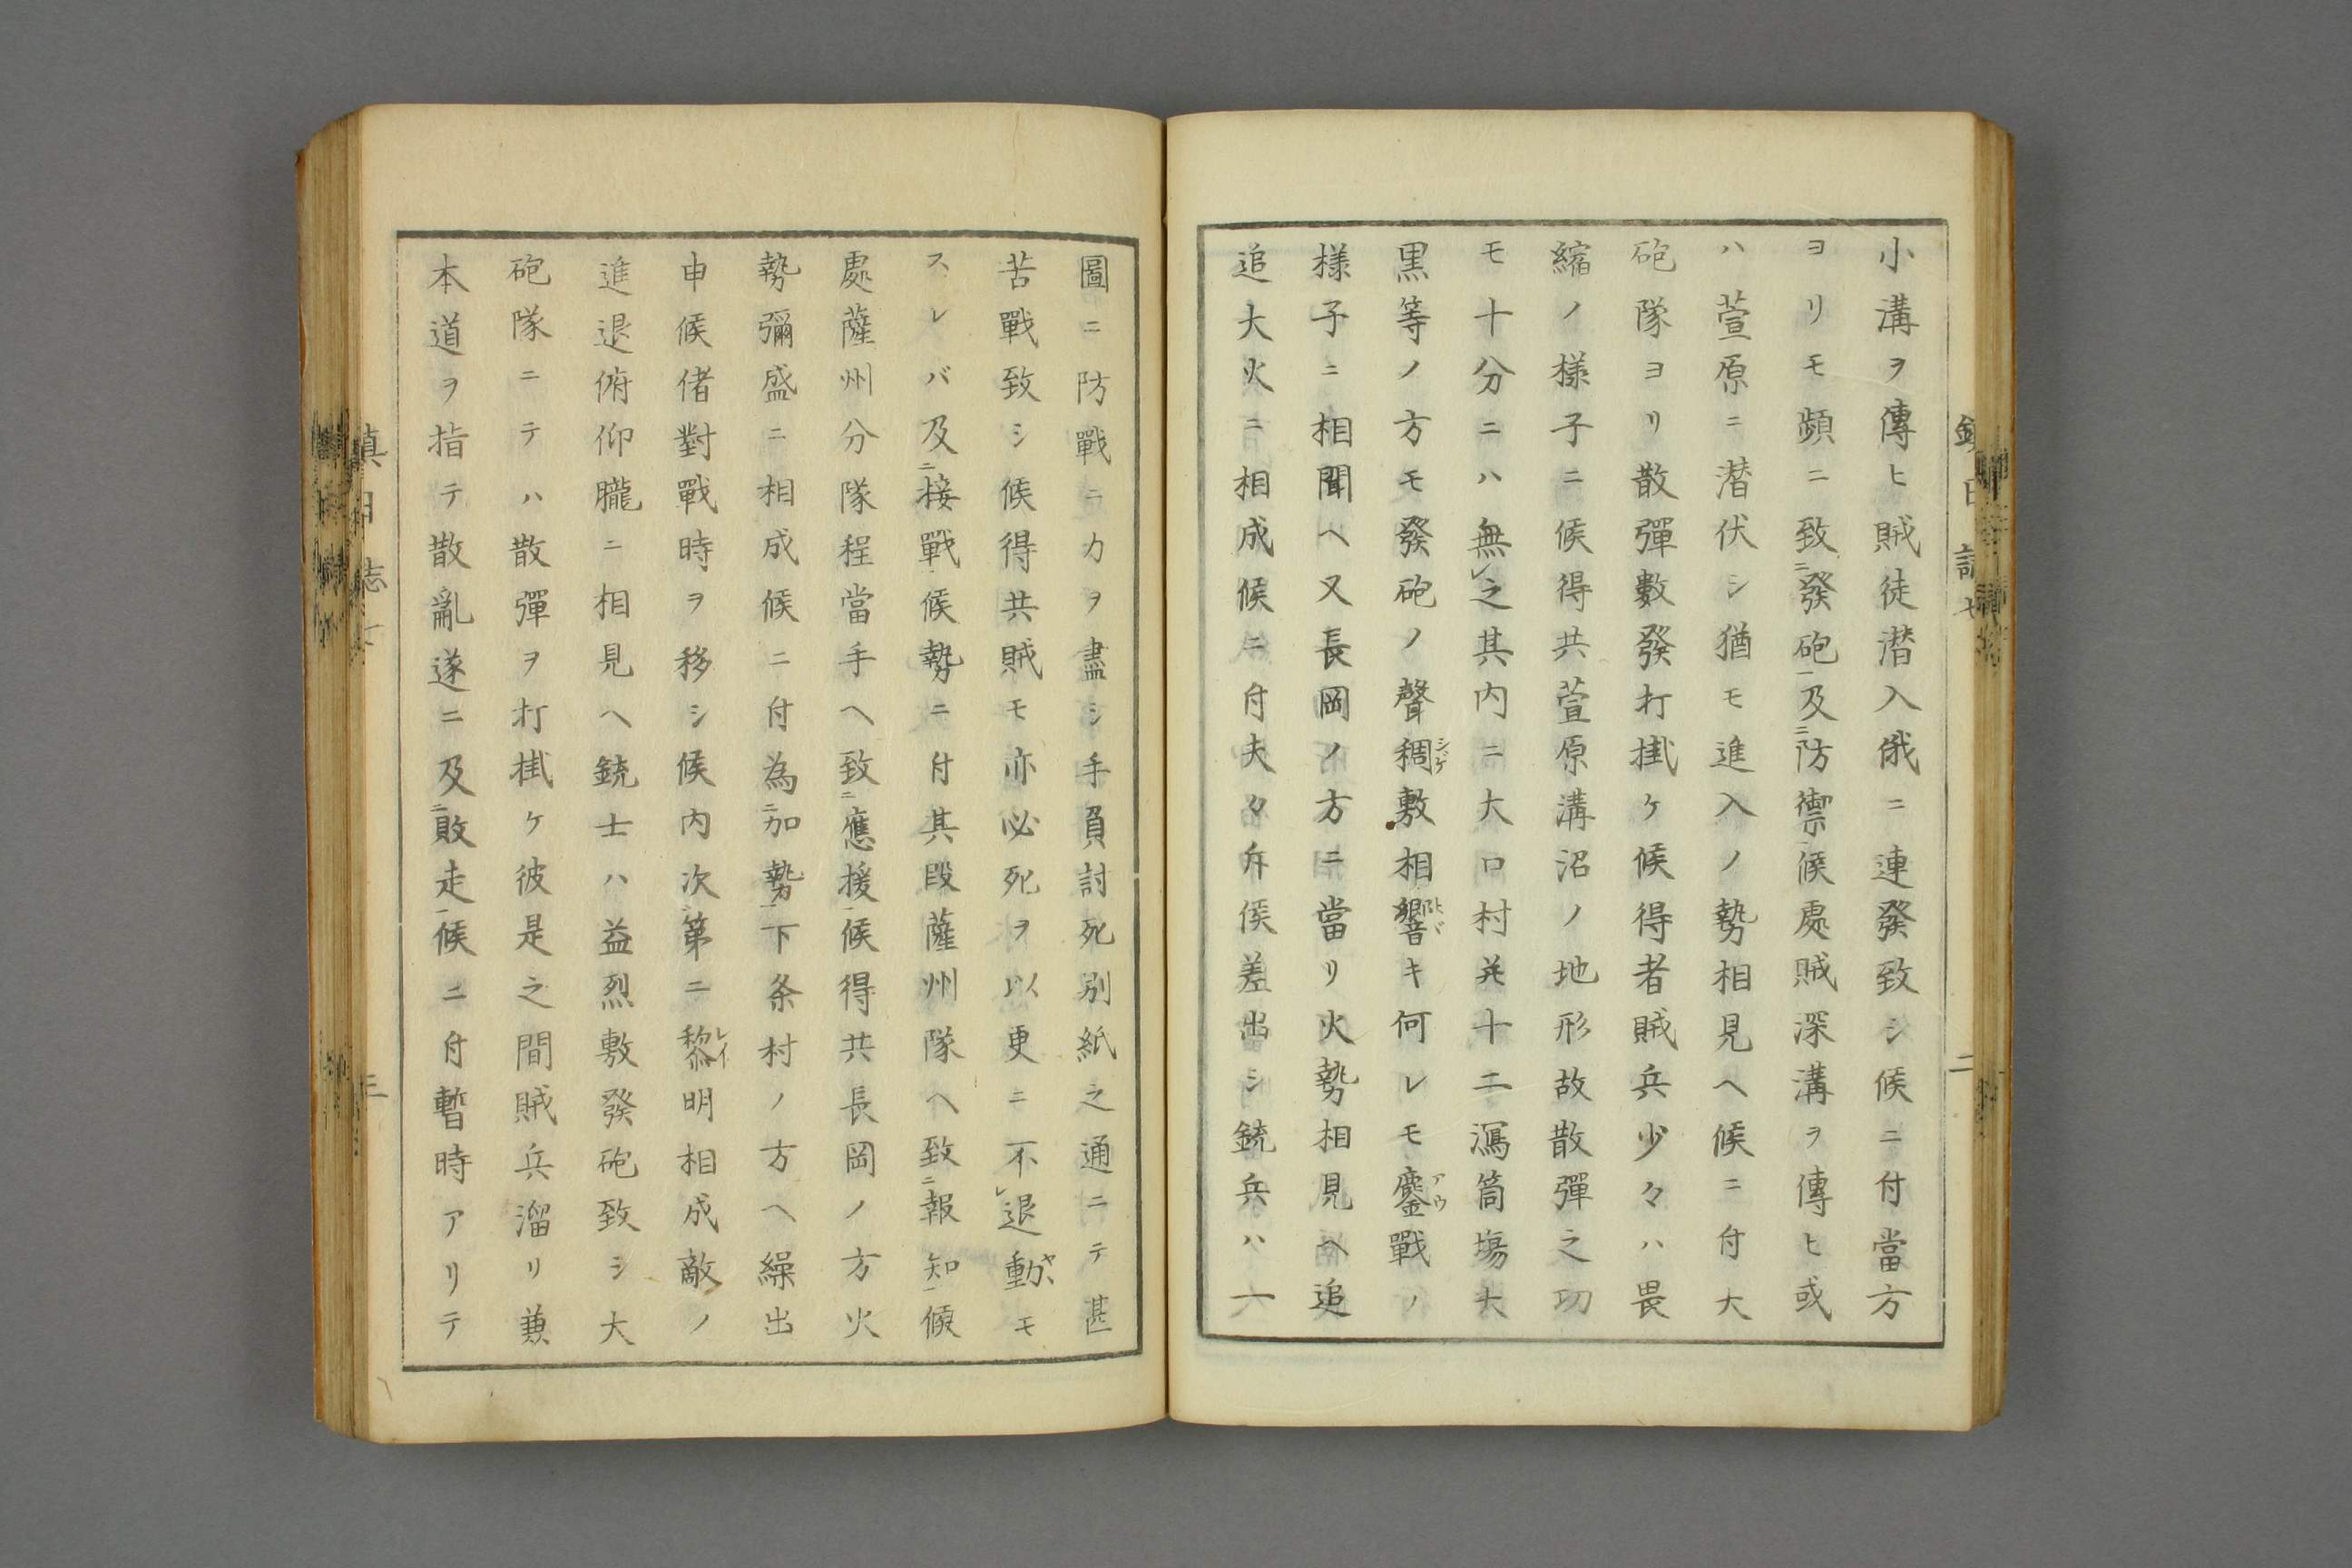 小溝ヲ傳ヒ賊徒潜入俄ニ連發致シ候ニ付當方
ヨリモ頻ニ致ニ發砲一及ニ防禦一候處賊深溝ヲ傳ヒ或
ハ萱原ニ潜伏シ猶モ進入ノ勢相見ヘ候ニ付大
砲隊ヨリ散彈數發打掛ケ候得者賊兵少々ハ畏
縮ノ様子ニ候得共萱原溝沼ノ地形故散彈之功
モ十分ニハ無レ之其内ニ大口村并十二潟筒塲大
黒等ノ方モ發砲ノ聲稠シゲ敷相響ヒビキ何レモ鏖アウ戰ノ
様子ニ相聞ヘ又長岡ノ方ニ當リ火勢相見ヘ追
追大火ニ相成候ニ付夫々斥候差出シ銃兵ハ一
圖ニ防戰ニカヲ盡シ手負討死別紙之通ニテ甚
苦戰致シ候得共賊モ亦必死ヲ以更ニ不レ退動ヤヽモ
スレバ及ニ接戰一候勢ニ付其段薩州隊ヘ致ニ報知一候
處薩州分隊程當手ヘ致ニ應援一候得共長岡ノ方火
勢彌盛ニ相成候ニ付為ニ加勢一下条村ノ方ヘ繰出
申候偖對戰時ヲ移シ候内次第ニ黎レイ明相成敵ノ
進退俯仰朧ニ相見ヘ銃士ハ益烈敷發砲致シ大
砲隊ニテハ散彈ヲ打掛ケ彼是之間賊兵溜リ兼
本道ヲ指テ散亂遂ニ及ニ敗走一候ニ付暫時アリテ
鎮日誌七
二
鎮日誌七
三